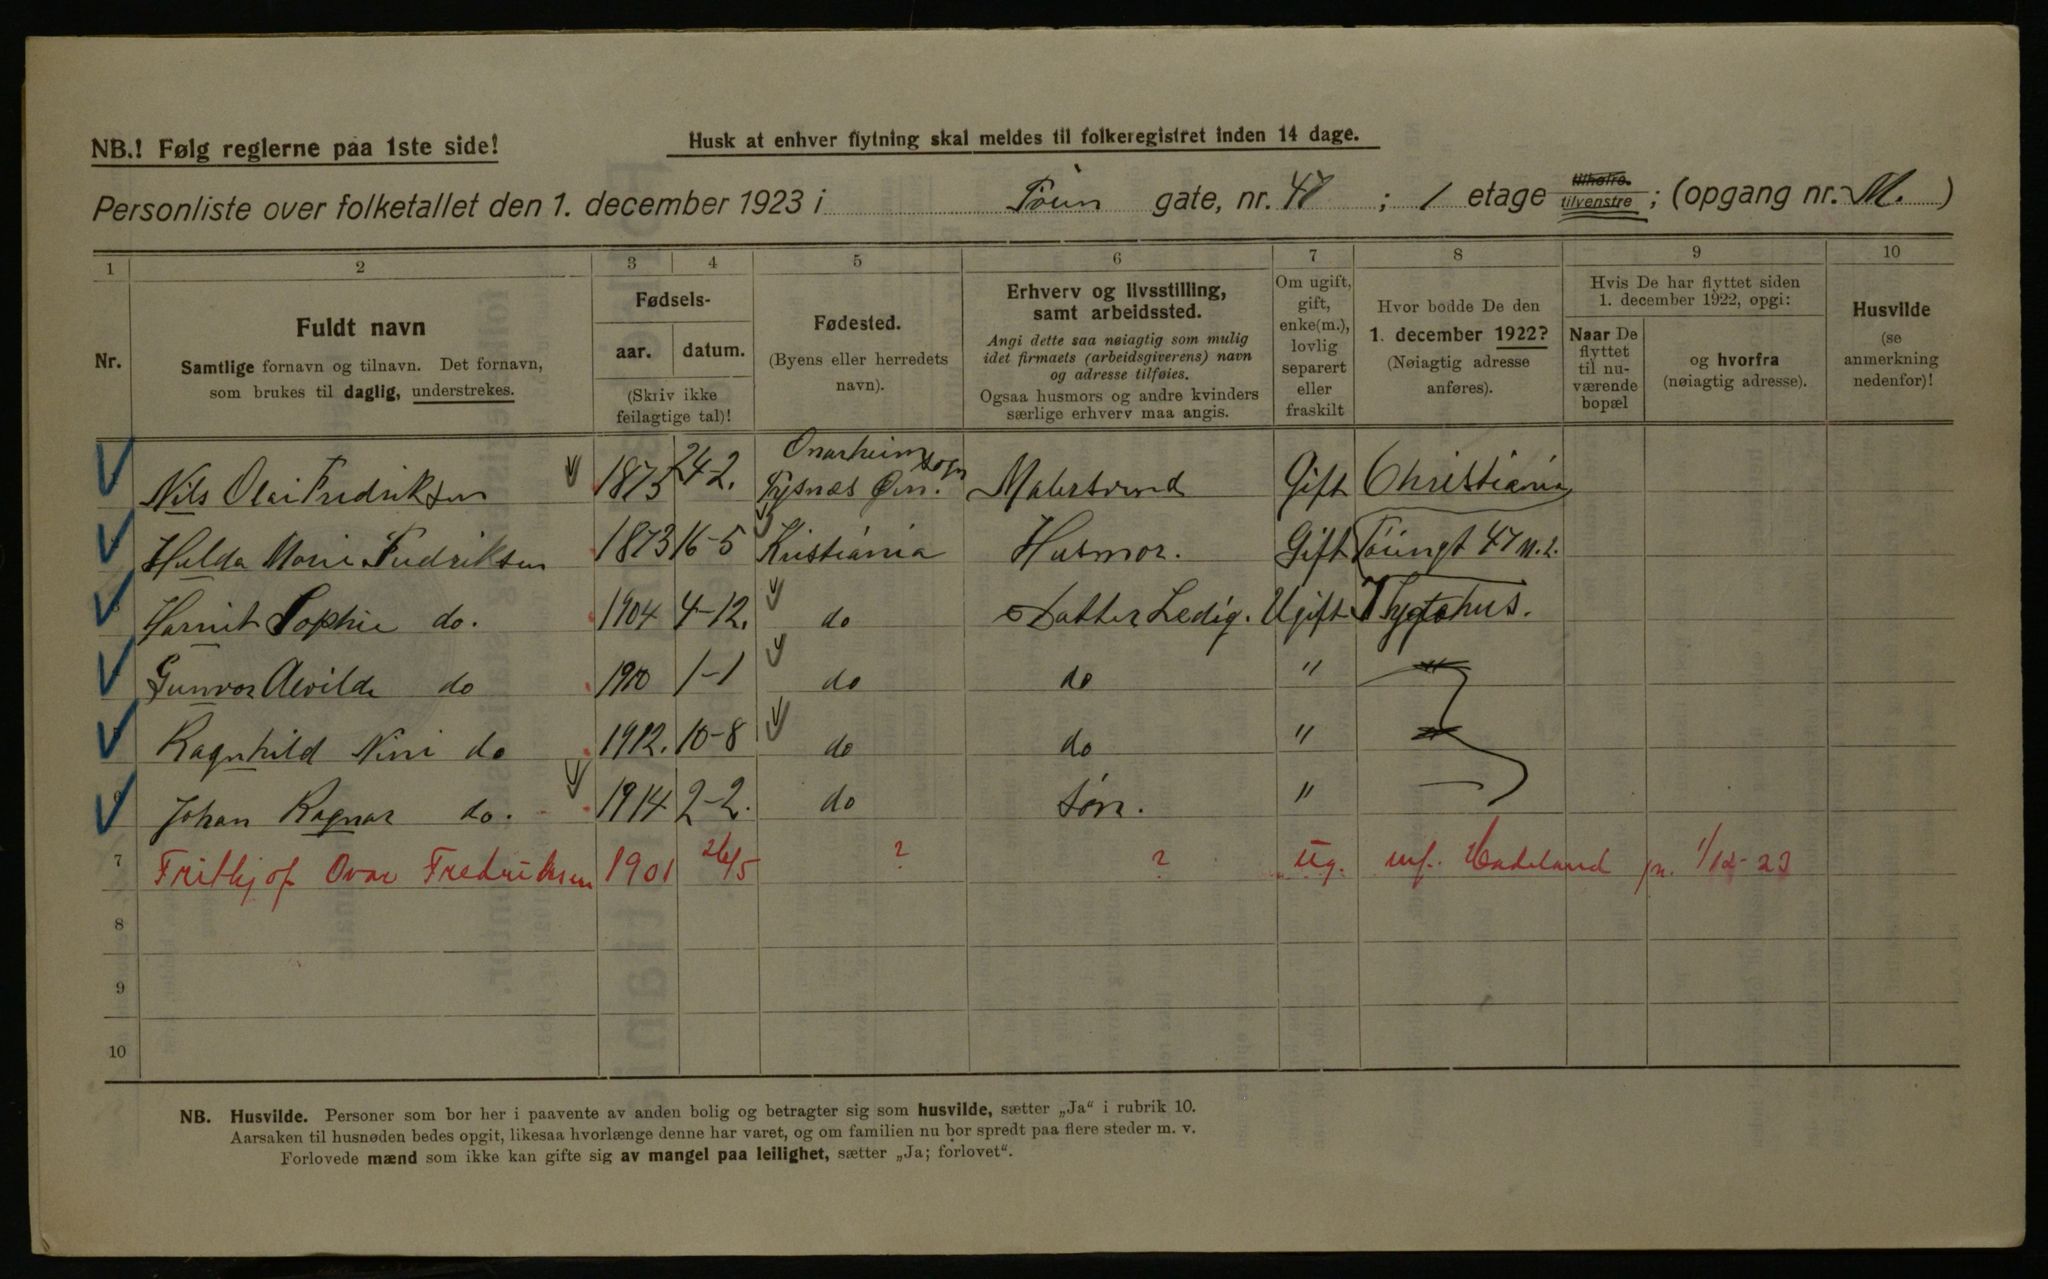 NB.! Følg reglerne paa 1ste side!
Husk at enhver flytning skal meldes til folkeregistret inden 14 dage.
Personliste over folketallet den 1. december 1923 i Töien gate, nr. 47 ; 1 etage tilhøire. tilvenstre ; (opgang nr. M. )
1 2 3 4 5 6 7 8 9 10
Nr.
Fuldt navn
Samtlige fornavn og tilnavn. Det fornavn,
som brukes til daglig, understrekes.
Fødsels-
aar. datum.
(Skriv ikke
feilagtige tal)!
Fødested.
(Byens eller herredets
navn).
Erhverv og livsstilling,
samt arbeidssted.
Angi dette saa nøiagtig som mulig
idet firmaets (arbeidsgiverens) navn
og adresse tilføies.
Ogsaa husmors og andre kvinders
særlige erhverv maa angis.
Om ugift,
gift,
enke(m.),
lovlig
separert
eller
fraskilt
Hvor bodde De den
1. december 1922?
(Nøiagtig adresse
anføres).
Hvis De har flyttet siden
1. december 1922, opgi:
Naar De
flyttet
til nu-
værende
bopæl
og hvorfra
(nøiagtig adresse).
Husvilde
(se
anmerkning
nedenfor)!
Nils Olai Fredriksen 1873 24-2. Onarheim sogn Tysnæs Malersvend Gift Christiania
Hulda Marie Fredriksen 1873 16-5 Kristiania Husmor. Gift Töiengt 47 M. 2.
Harriet Sophie do. 1904 4-12. do Datter Ledig. Ugift
Gunvor Alvilde do 1910 1-1 do do "
Ragnhild Nini do 1912. 10-8 do do "
6 Johan Ragnar do. 1914 2-2. do Søn. "
7 Frithjof Ovar Fredriksen 1901 26/5 ? ? Ug. Hadeland 1/12-23
8
9
10
NB. Husvilde. Personer som bor her i paavente av anden bolig og betragter sig som husvilde, sætter „Ja“ i rubrik 10.
Aarsaken til husnøden bedes opgit, likesaa hvorlænge denne har varet, og om familien nu bor spredt paa flere steder m. v.
Forlovede mænd som ikke kan gifte sig av mangel paa leilighet, sætter „Ja; forlovet“.